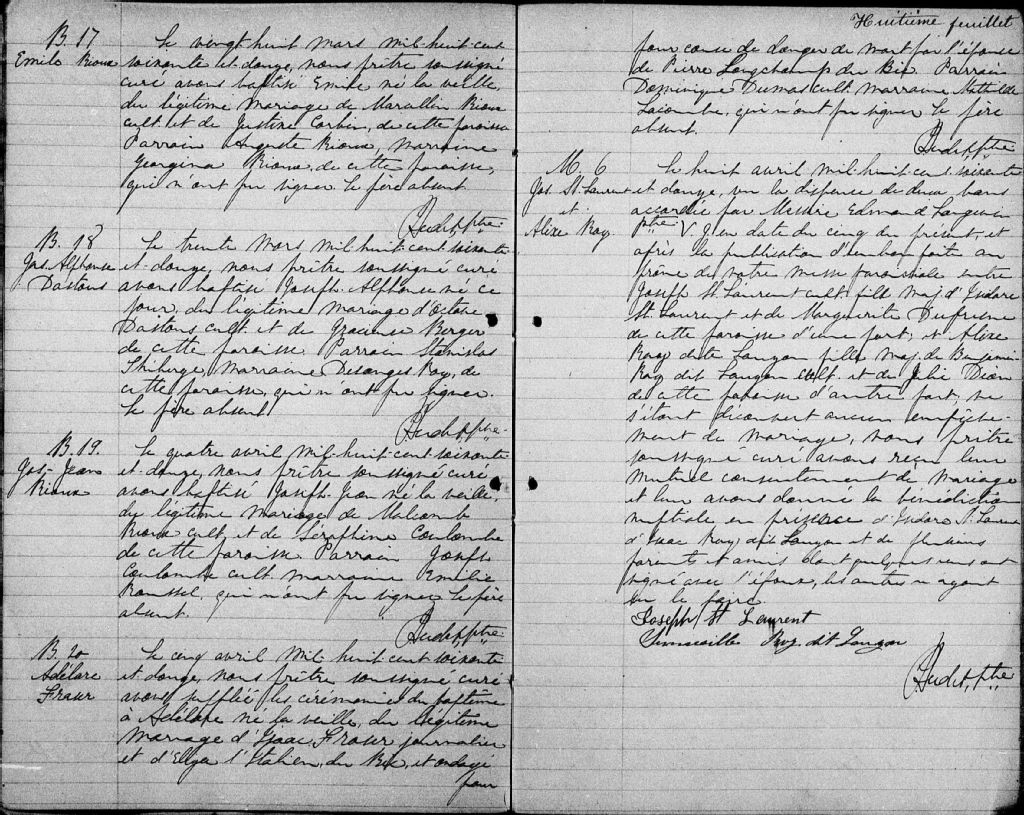 B. 17
Emile Rioux
Le vingt huit Mars mil huit cent
soixante et douze, nous prêtre soussigné
curé avons baptisé Emile né la veille
du légitime mariage de Marcellin Rioux
cult et de Justine Corbin, de cette paroisse
Parrain Auguste Rioux, marraine
Georgina Rioux, de cette paroisse,
qui n'ont pu signer le père absent
Audet, ptre
B. 18
Jos. Alphonse
Dastous
Le trente Mars mil huit cent soixante
et douze, nous prêtre soussigné curé
avons baptisé Joseph Alphonse né ce
jour, du légitime mariage d'Octave
Dastous cult et de Gracieuse Berger
de cette paroisse Parrain Stanislas
Thiberge, marraine Desanges Roy, de
cette paroisse, qui n'ont pu signer.
Le père absent
Audet, ptre
B. 19.
Jos-Jean
Rioux
Le quatre avril mil huit cent soixante
et douze, nous prêtre soussigné curé
avons baptisé Joseph Jean né la veille,
du légitime mariage de Malcomb
Rioux cult et de Séraphine Coulombe
de cette paroisse Parrain Joseph
Coulombe cult marraine Emilie
Roussel, qui n'ont pu signer le père
absent.
Audet, ptre
B. 20
Adélare
Fraser
Le cinq avril mil huit cent soixante
et douze, nous prêtre soussigné curé
avons suppléé les cérémonies du baptême
à Adélare né la veille, du légitime
mariage d'Isaac Fraser journalier
et d'Elyza l'Italien, du Bic, et ondoyé
pour
Huitième feuillet
pour cause de danger de mort par l'épouse
de Pierre Longchamp du Bic Parrain
Dominique Dumas cult. marraine Mathilde
Lacombe, qui n'ont pu signer le père
absent.
Audet, ptre
M. 6
Jos St. Laurent
et
Alixe Roy
Le huit avril mil huit cent soixante
et douze, vu la dispense de deux bans
accordée par Messire Edmond Langevin
ptre V. G. en date du cinq du présent, et
après la publication d'un ban faite au
prône de notre messe paroissiale entre
Joseph St. Laurent cult fils maj. d'Isidore
St. Laurent et de Marguerite Dufresne
de cette paroisse d'une part, et Alixe
Roy dit Lauzon fille maj. de Benjamin
Roy dit Lauzon cult. et de Julie Dion
de cette paroisse d'autre part, ne
s'étant découvert aucun empêche-
ment de mariage, nous prêtre
soussigné curé avons reçu leur
mutuel consentement de mariage
et leur avons donné la bénédiction
nuptiale en présence d'Isidore St. Laurent
d'Isaac Roy dit Lauzon et de plusieurs
parents et amis dont quelques uns ont
signé avec l'époux, les autres n'ayant
su le faire
Joseph St Laurent
Roy dit Lauzon
Audet, ptre